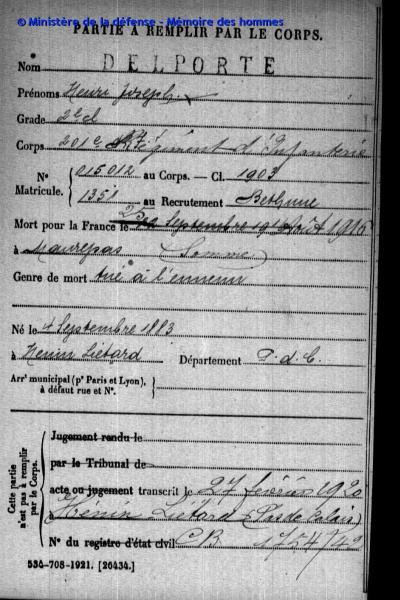 © Ministère de la défense - Mémoire des hommes
PARTIE A REMPLIR PAR LE CORPS.
Nom DELPORTE
Prénoms Henri Joseph
Grade 2e cl
Corps 201e Régiment d'Infanterie
Nº 015012 au Corps. — Cl. 1903
Matricule. 1351 au Recrutement Béthune
Mort pour la France le Septembre 1916 Août 1916
à Maurepas (Somme)
Genre de mort tué à l'ennemi
Né le 4 Septembre 1883
à Henin Liétard Département P. d. C.
Arrt municipal (pr Paris et Lyon),
à défaut rue et Nº.
Cette partie n'est pas à remplir par le Corps.
Jugement rendu le
par le Tribunal de
acte ou jugement transcrit le 27 février 1920
à Hénin Liétard (Pas de Calais)
Nº du registre d'état civil CB 1754/42
534-708-1921. [26434.]